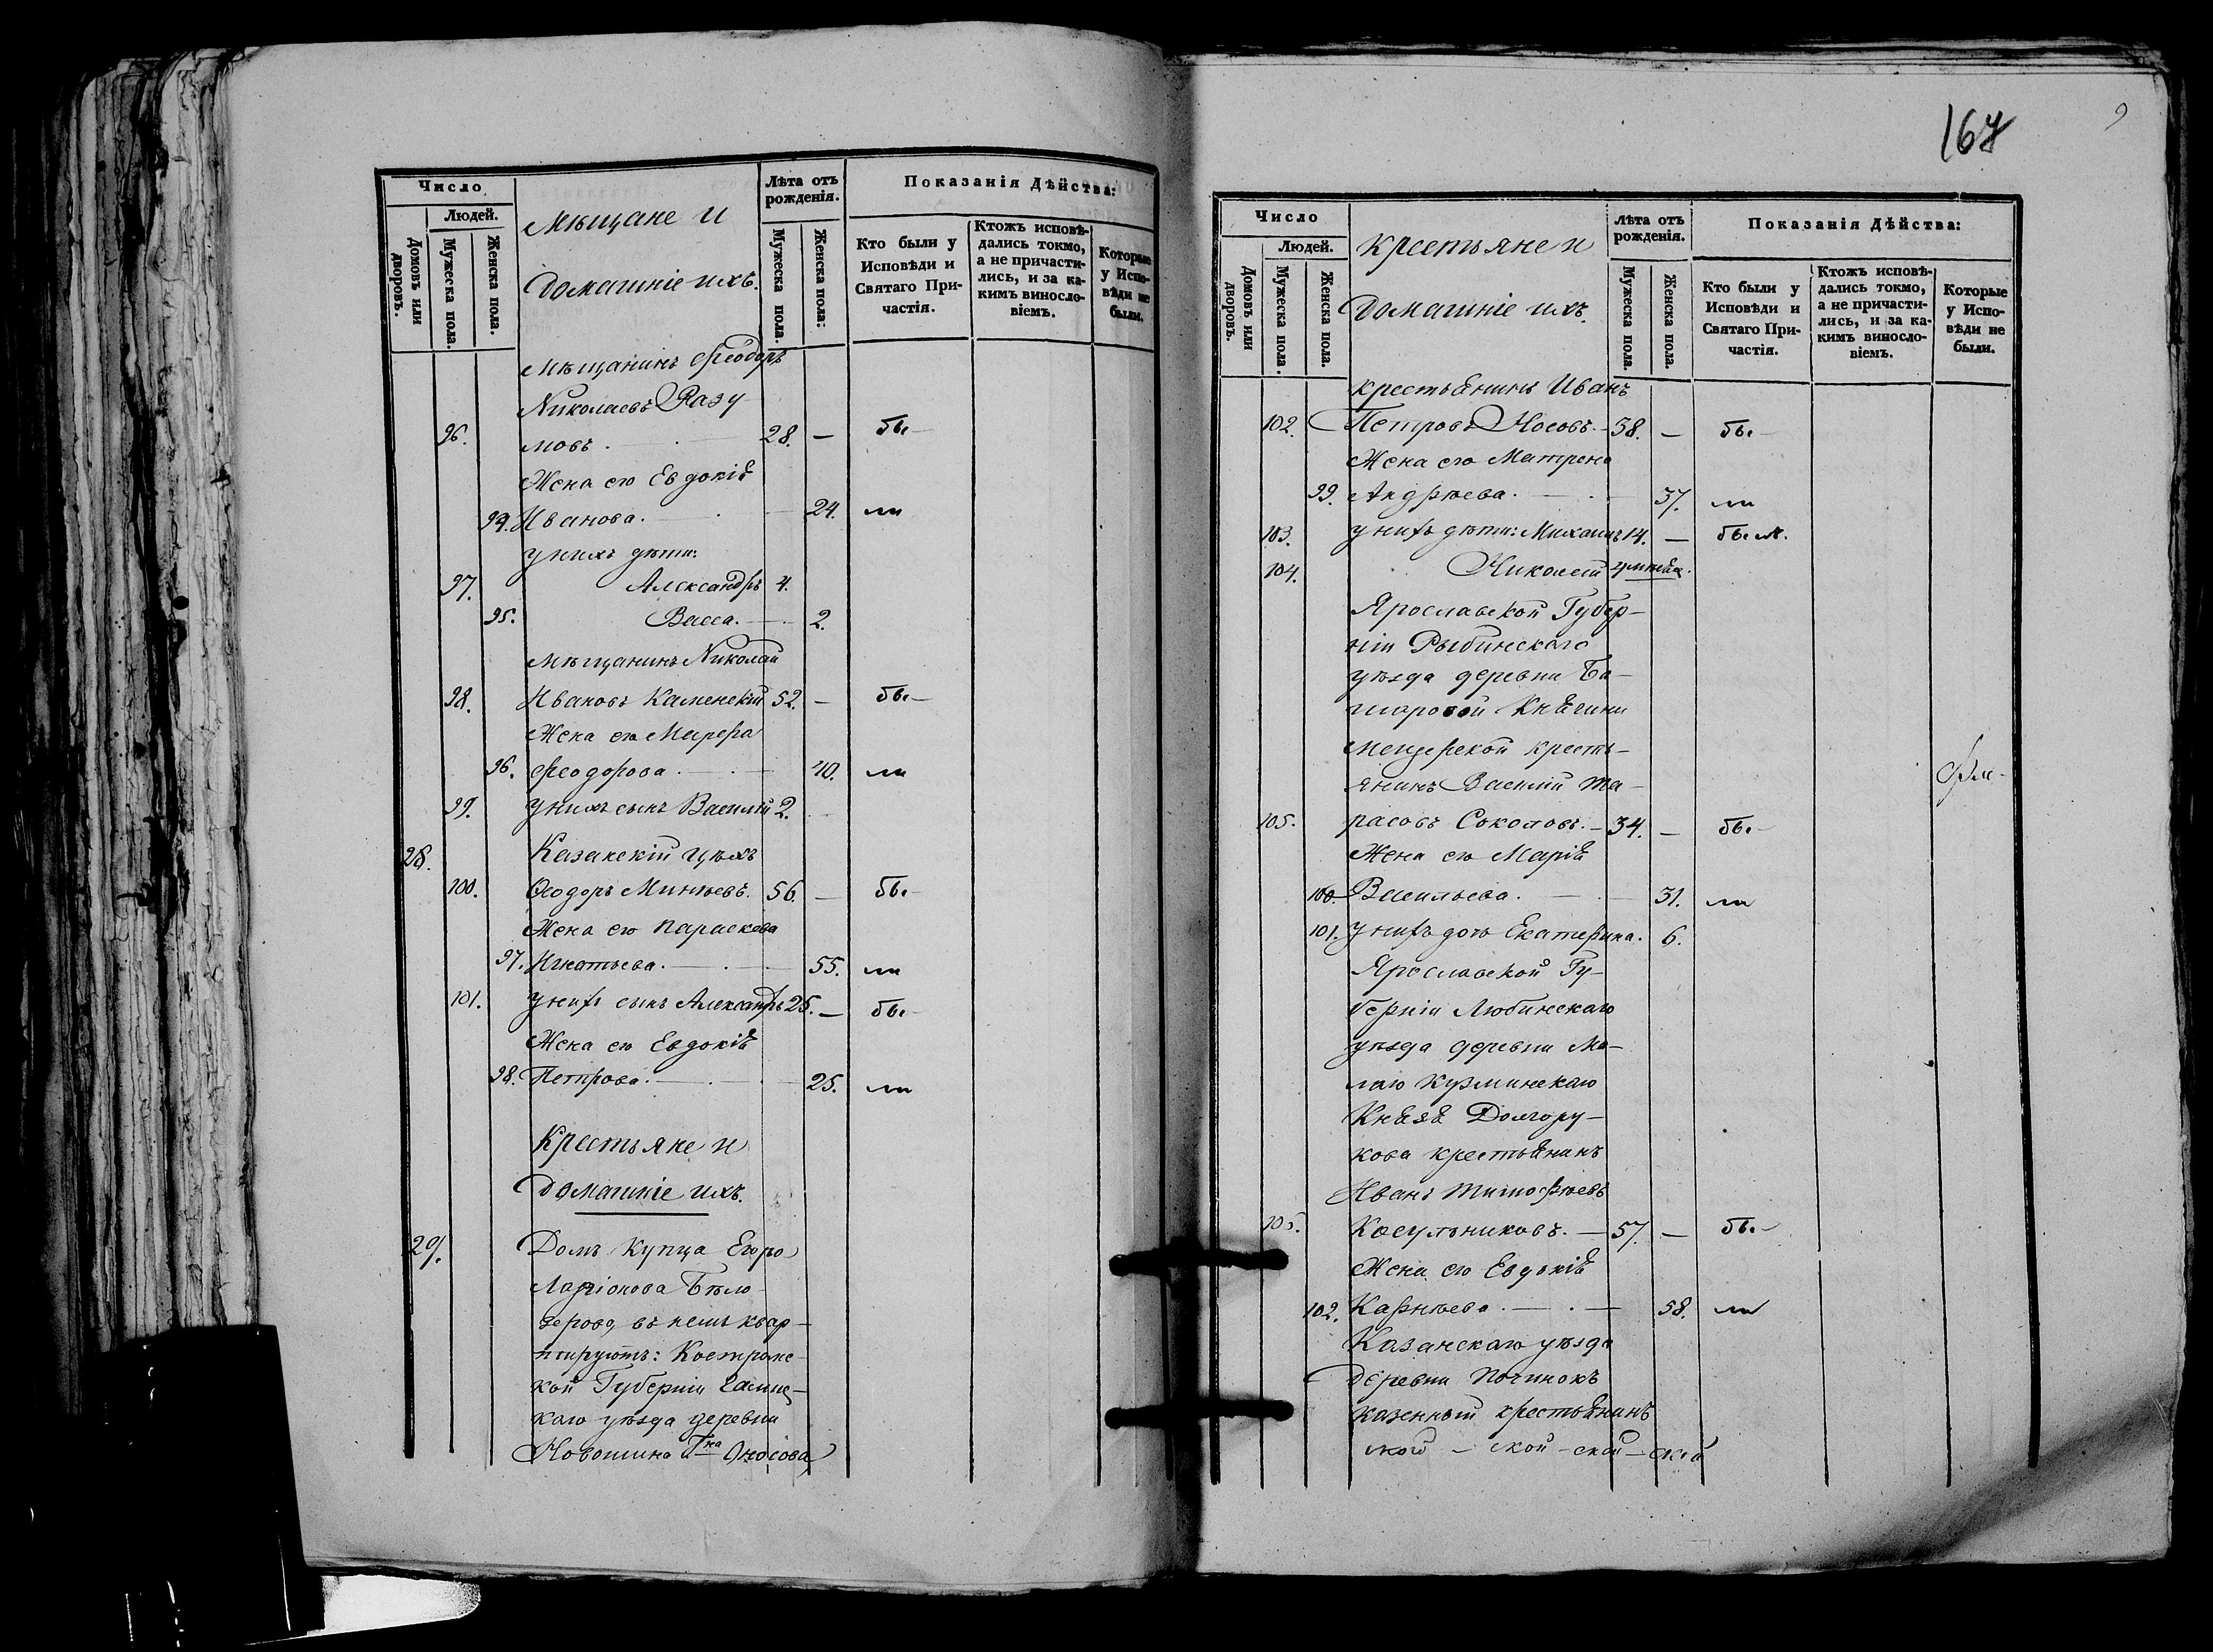 Число
Людей.
Домовъ или дворовъ.
Мужеска пола.
Женска пола.
Мѣщане и
Домашніе ихъ.
Лѣта отъ рожденія.
Мужеска пола.
Женска пола:
Показанія Дѣйства:
Кто были у Исповѣди и Святаго При-частія.
Ктожъ исповѣ-дались токмо, а не причасти-лись, и за ка-кимъ винosло-віемъ.
Которые у Испо-вѣди не были.
Мѣщанинъ Ѳеодоръ
Николаевъ Разу-
96. мовъ. 28. — бы —
Жена его Евдокія
94. Иванова. — 24. ли
у нихъ дѣти:
97. Александръ 4.
95. Васса. — 2.
Мѣщанинъ Николай
98. Ивановъ Каменскій 52. — бы —
Жена его Марѳа
96. Ѳеодорова. — 40. ли
99. у нихъ сынъ Василій 2.
28. Казанскій цѣхъ
100. Ѳеодоръ Минѣевъ. 56. — бы —
Жена его Параскева
97. Игнатьева. — 55. ли
101. у нихъ сынъ Александръ 25. — бы —
Жена его Евдокія
98. Петрова. — 25. ли
Крестьяне и
Домашніе ихъ.
29. Домъ купца Егора
Ларіонова Бѣло-
зерова, въ немъ квар-
тируютъ: Костромс-
кой Губерніи Галиц-
каго уѣзда деревни
Новошина Гна Аносова
167
9
Число
Людей.
Домовъ или дворовъ.
Мужеска пола.
Женска пола.
Крестьяне и
Домашніе ихъ.
Лѣта отъ рожденія.
Мужеска пола.
Женска пола.
Показанія Дѣйства:
Кто были у Исповѣди и Святаго При-частія.
Ктожъ исповѣ-дались токмо, а не причасти-лись, и за ка-кимъ винosло-віемъ.
Которые у Испо-вѣди не были.
крестьянинъ Иванъ
102. Петровъ Носовъ. — 38. — бы —
Жена его Матрена
99. Андрѣева. — 37. ли
103. у нихъ дѣти: Михаилъ 14. — былъ.
104. Николай
Ярославской Губер-
ніи Рыбинскаго
уѣзда деревни Ба-
шаровой Княгини
Мещерской кресть-
янинъ Василій Та-
105. расовъ Соколовъ. — 34. — бы —
Жена его Марія
100. Васильева. — 31. ли
101. у нихъ дочь Екатерина. 6.
Ярославской Гу-
берніи Любимскаго
уѣзда деревни Ма-
лаго Курминскаго
Князя Долгору-
кова крестьянинъ
Иванъ Тимоѳѣевъ
105. Косульниковъ. — 57. — бы —
Жена его Евдокія
102. Карнѣева. — 58. ли
Казанскаго уѣзда
деревни Починокъ
казенный крестьянинъ
ской — ской — ской — ской